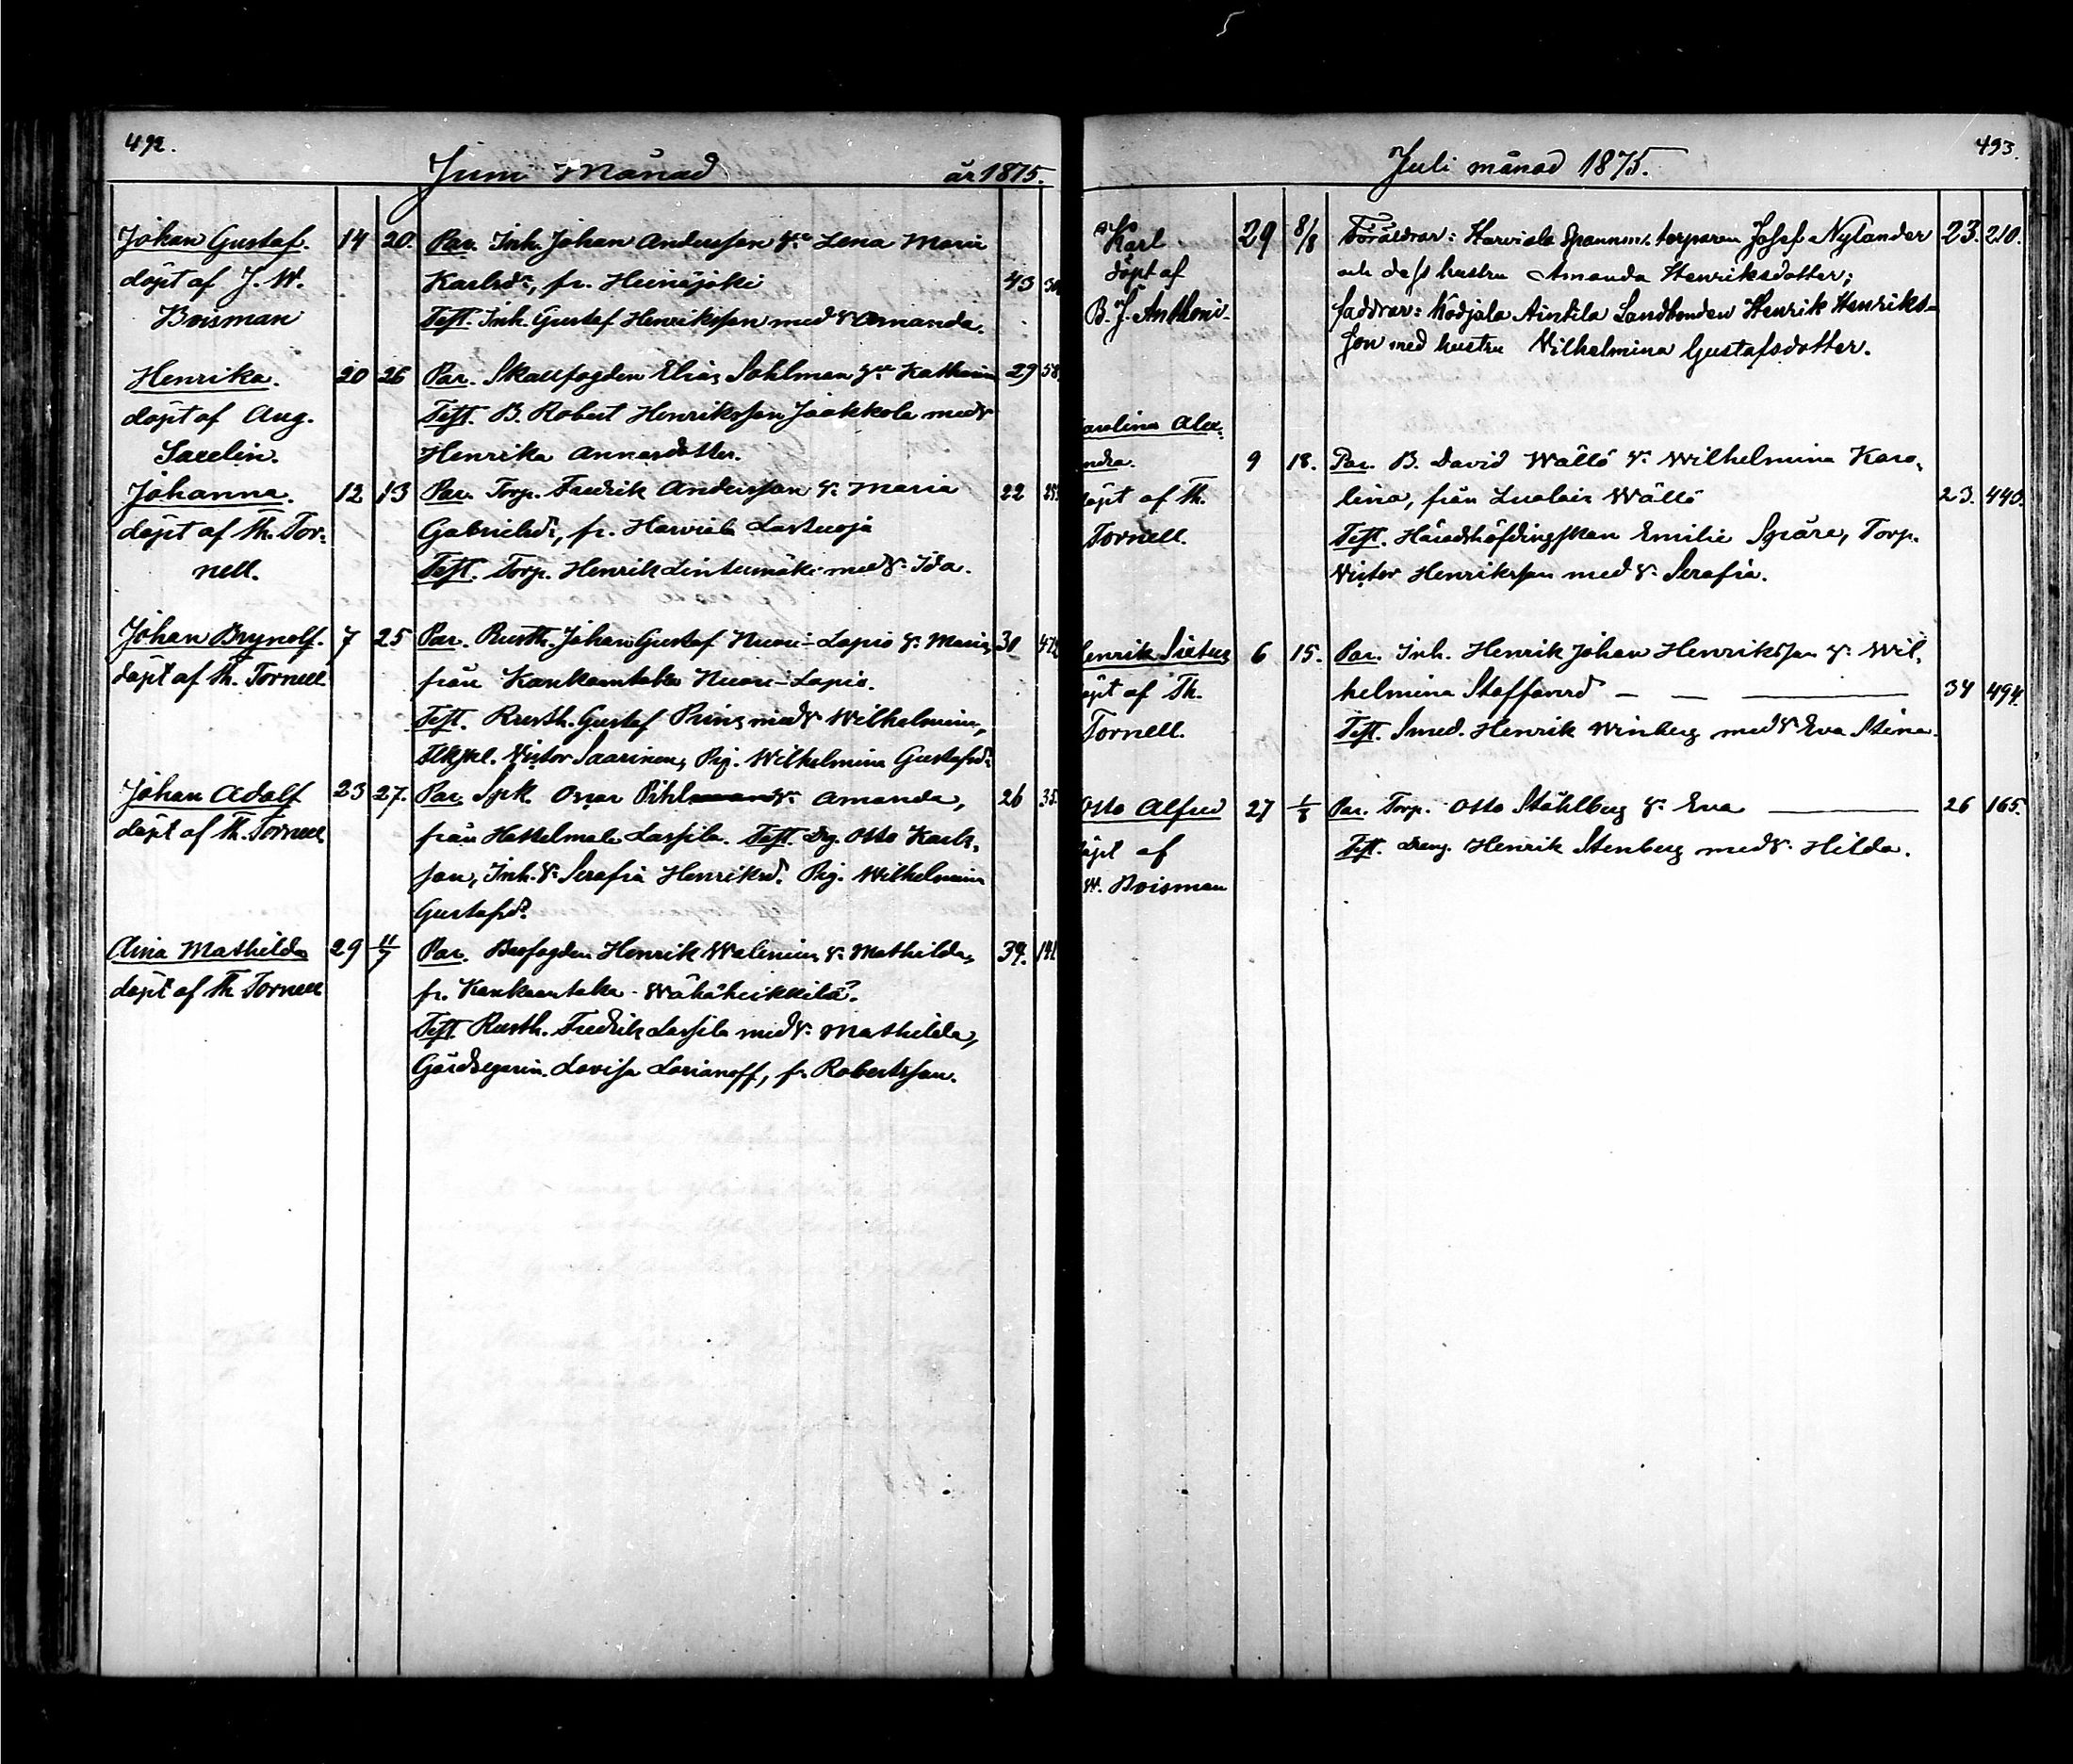 492.
Juni Månad år 1875.
Johan Gustaf. 14 20. Par. Inh. Johan Andersson &. Lena Maria
döpt af J. W. Karlsdr, fr. Heinäjoki 43
Boisman Test. Inh. Gustaf Henriksson med &. Amanda.
Henrika. 20 26 Par. Skallfogden Elias Sohlman &. Katharina 29 58
döpt af Aug. Test. B. Robert Henriksson Jaakkola med &.
Saxelin. Henrika Annasdotter.
Johanna. 12 13 Par. Torp. Fredrik Andersson &. Maria 22
döpt af Th. Tor- Gabrielsd:, fr. Harviala Lastuoja
nell. Test. Torp. Henrik Lintumäki med &. Ida.
Johan Brynolf. 7 25 Par. Rusth. Johan Gustaf Nuori-Lapio &. Maria, 31
döpt af Th. Tornell från Kankaantaka Nuori-Lapio.
Test. Rusth. Gustaf Prins med &. Wilhelmina,
Victor Saarinen, Pig. Wilhelmina Gustafsd:
Johan Adolf 23 27. Par. Spk. Oscar Pihlman &. Amanda, 26 35
döpt af Th. Tornell från Hattelmala Lassila. Test. Dg. Otto Karls-
son, Inh. &. Serafia Henriksd. Pig. Wilhelmina
Gustafsd:
Aina Mathilda 29 11/7 Par. Henrik Walenius &. Mathilda, 39. 141
döpt af Th Tornell fr. Kankaantaka - Wähäheikkilä.
Test. Rusth. Fredrik Lassila med &. Mathilda,
Gårdsegarin. Lovisa Larianoff, f. Robertsson.
493.
Juli månad 1875.
Karl 29 8/8 Föräldrar: Harviala Spannm. torparen Josef Nylander 23. 210.
döpt af och dess hustru Amanda Henriksdotter;
B. J. Anthoni. faddrar: Ködjala Äintila Landbonden Henrik Henriks-
son med hustru Vilhelmina Gustafsdotter.
arolina Alex-
ndra. 9 18. Par. B. David Wällö &. Wilhelmina Karo-
döpt af Th. lina, från Luolais Wällö 23. 440.
Tornell. Test. Häradshöfdingskan Emilie Spåre, Torp.
Victor Henriksson med &. Serafia.
enrik Sixtus 6 15. Par. Inh. Henrik Johan Henriksson &. Wil-
döpt af Th. helmina Staffansd — — — 34 494.
Tornell. Test. Smed. Henrik Winberg med &. Eva Stina.
Otto Alfred 27 1/8 Par. Torp. Otto Ståhlberg &. Eva — 26 165.
döpt af Test. Dreng. Henrik Stenberg med &. Hilda.
W. Boisman